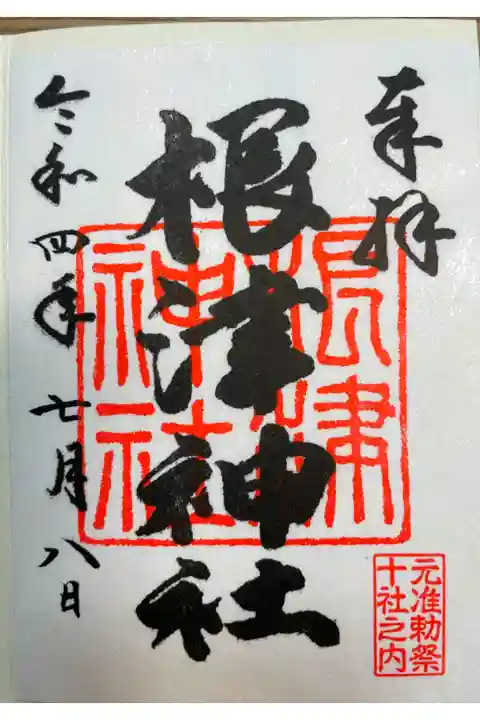 奉拝
根津神社
令和四年七月八日
根津
神社
元准勅祭
十社之内